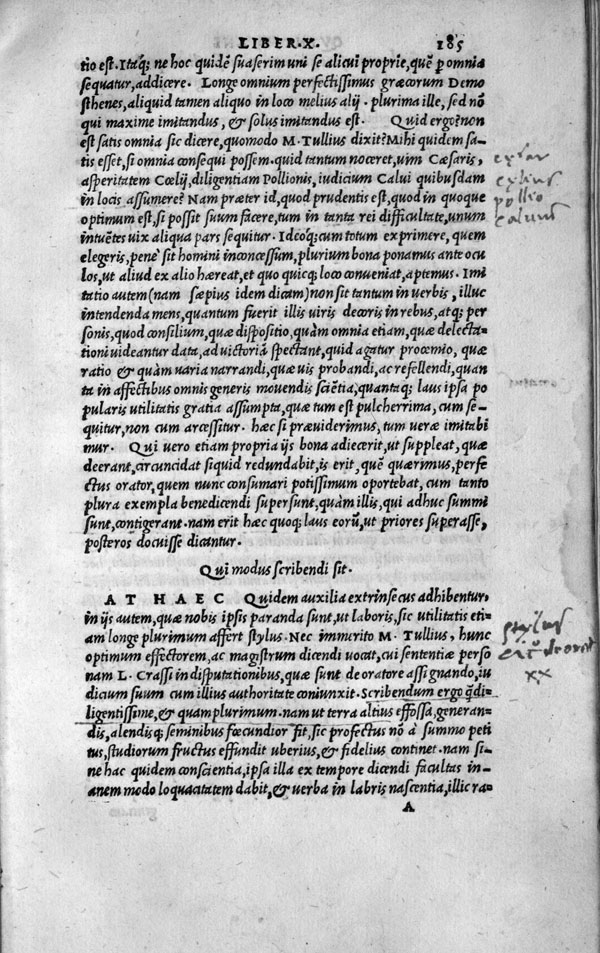 LIBER.X. 185
tio est. Itaq; ne hoc quidē suaserim uni se alicui proprie, quē p omnia
sequatur, addicere. Longe omnium perfectissimus græcorum Demo
sthenes, aliquid tamen aliquo in loco melius alij. plurima ille, sed nō
qui maxime imitandus, & solus imitandus est. Quid ergo? non
est satis omnia sic dicere, quomodo M. Tullius dixit? Mihi quidem sa-
tis esset, si omnia consequi possem. quid tantum noceret, uim Cæsaris,
asperitatem Cœlij, diligentiam Pollionis, iudicium Calui quibusdam
in locis assumere? Nam præter id, quod prudentis est, quod in quoque
optimum est, si possit suum facere, tum in tanta rei difficultate, unum
intuētes uix aliqua pars sequitur. Ideoq; cum totum exprimere, quem
elegeris, penè sit homini inconcessum, plurium bona ponamus ante ocu
los, ut aliud ex alio hæreat, et quo quicq; loco conueniat, aptemus. Imi
tatio autem (nam sæpius idem dicam) non sit tantum in uerbis, illuc
intendenda mens, quantum fuerit illis uiris decoris in rebus, atq; per
sonis, quod consilium, quæ dispositio, quàm omnia etiam, quæ delecta-
tioni uideantur data, ad uictoriā spectant, quid agatur proœmio, quæ
ratio & quàm uaria narrandi, quæ uis probandi, ac refellendi, quan
ta in affectibus omnis generis mouendis sciētia, quantaq; laus ipsa po
pularis utilitatis gratia assumpta, quæ tum est pulcherrima, cum se-
quitur, non cum arcessitur. hæc si præuiderimus, tum ueræ imitabi
mur. Qui uero etiam propria ijs bona adiecerit, ut suppleat, quæ
deerant, circuncidat siquid redundabit, is erit, quē quærimus, perfe
ctus orator, quem nunc consumari potissimum oportebat, cum tanto
plura exempla benedicendi supersunt, quàm illis, qui adhuc summi
sunt, contigerant. nam erit hæc quoq; laus eorū, ut priores superasse,
posteros docuisse dicantur.
Qui modus scribendi sit.
AT HAEC Quidem auxilia extrinsecus adhibentur,
in ijs autem, quæ nobis ipsis paranda sunt, ut laboris, sic utilitatis eti-
am longe plurimum affert stylus. Nec immerito M. Tullius, hunc
optimum effectorem, ac magistrum dicendi uocat, cui sententiæ perso
nam L. Crassi in disputationibus, quæ sunt de oratore assignando, iu
dicium suum cum illius authoritate coniunxit. Scribendum ergo q̄ di-
ligentissime, & quam plurimum. nam ut terra altius effossa, generan-
dis, alendisq; seminibus fœcundior fit, sic profectus nō à summo peti
tus, studiorum fructus effundit uberius, & fidelius continet. nam si-
ne hac quidem conscientia, ipsa illa ex tempore dicendi facultas in-
anem modo loquacitatem dabit, & uerba in labris nascentia, illic ra-
A
pollio
caluus
stylus
xx